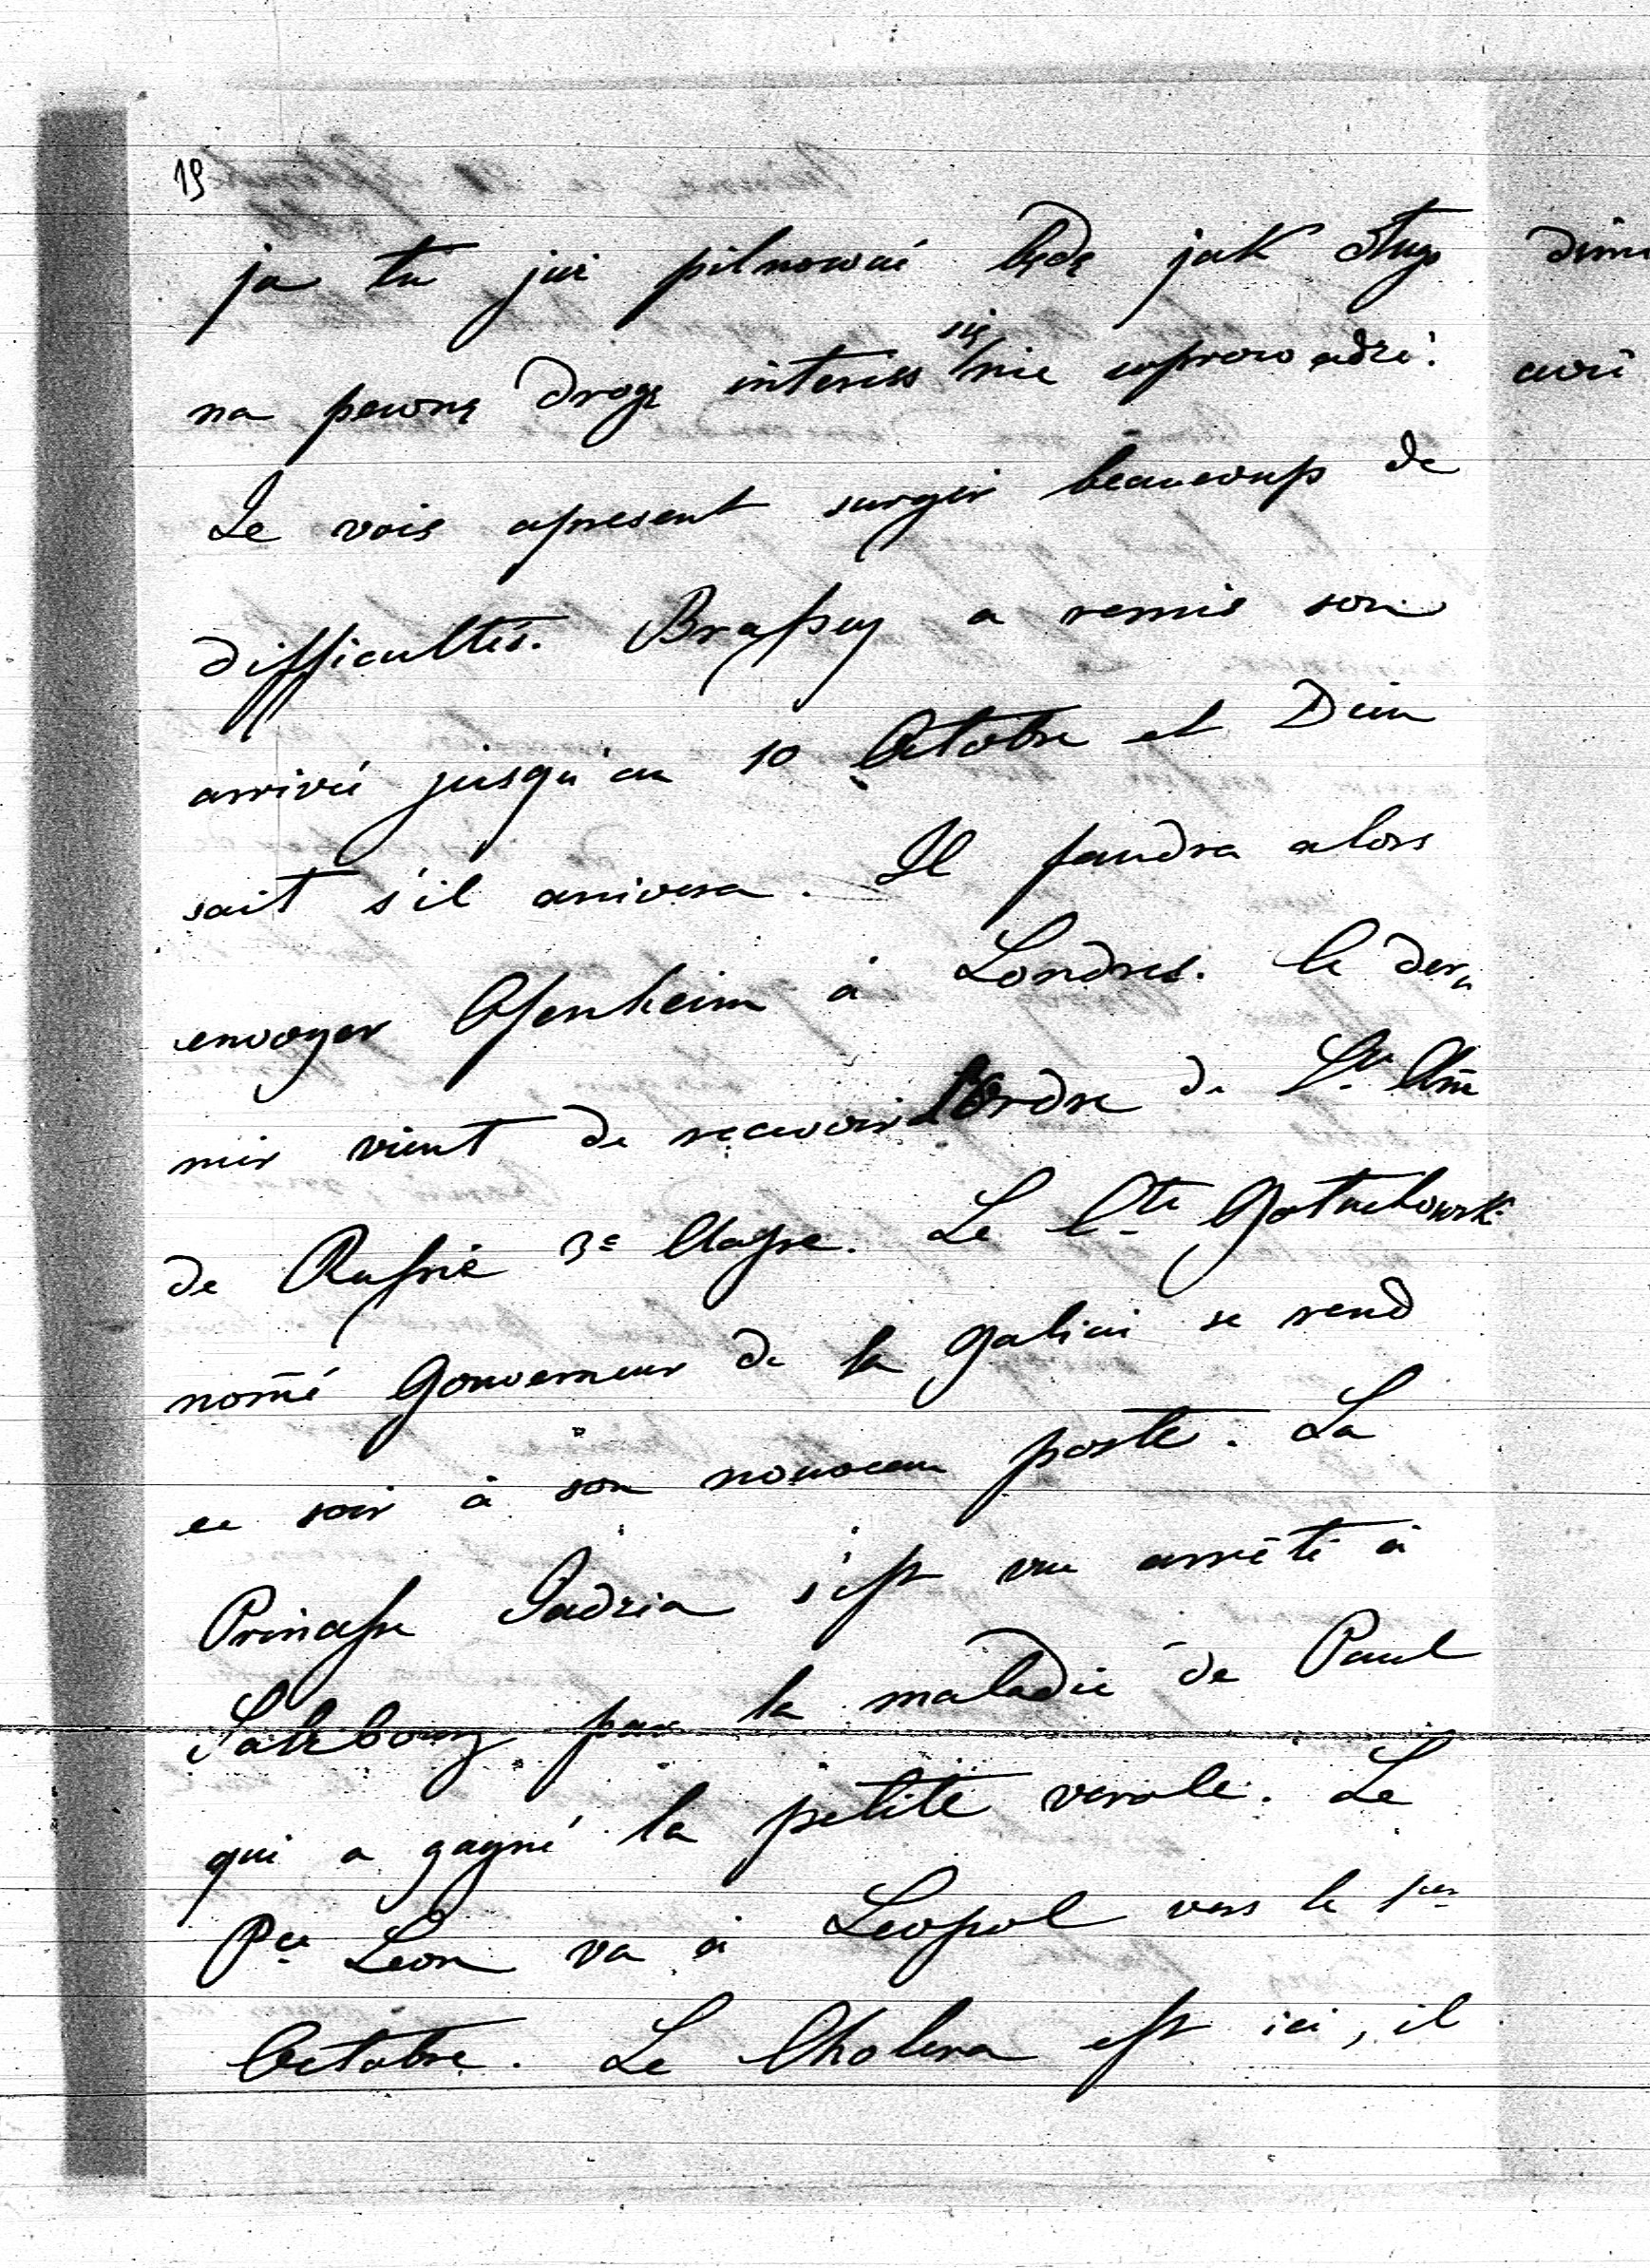 19
ja tu już pilnować będę jak długo
na pewną drogę interess się nie wprowadzi.
Je vois apresent surgir beaucoup de
difficultés. Brassey a remis son
arrivé jusqu'au 10 Octobre et Dieu
sait s'il arrivera. Il faudra alors
envoyer Ofenheim à Londres. le der
nier vient de recevoir l'Ordre de St. Ann
de Russie 3e Classe. Le Cte Gołuchowski
nom̄é Gouverneur de la Galicie se rend
ce soir à son nouveau poste. La
Princesse Jadzia s'est vu arrêté à
Salzbourg par la maladie de Paul
qui a gagné la petite verole. Le
Pce Leon va à Leopol vers le 1er
Octobre. Le Cholera est ici, il